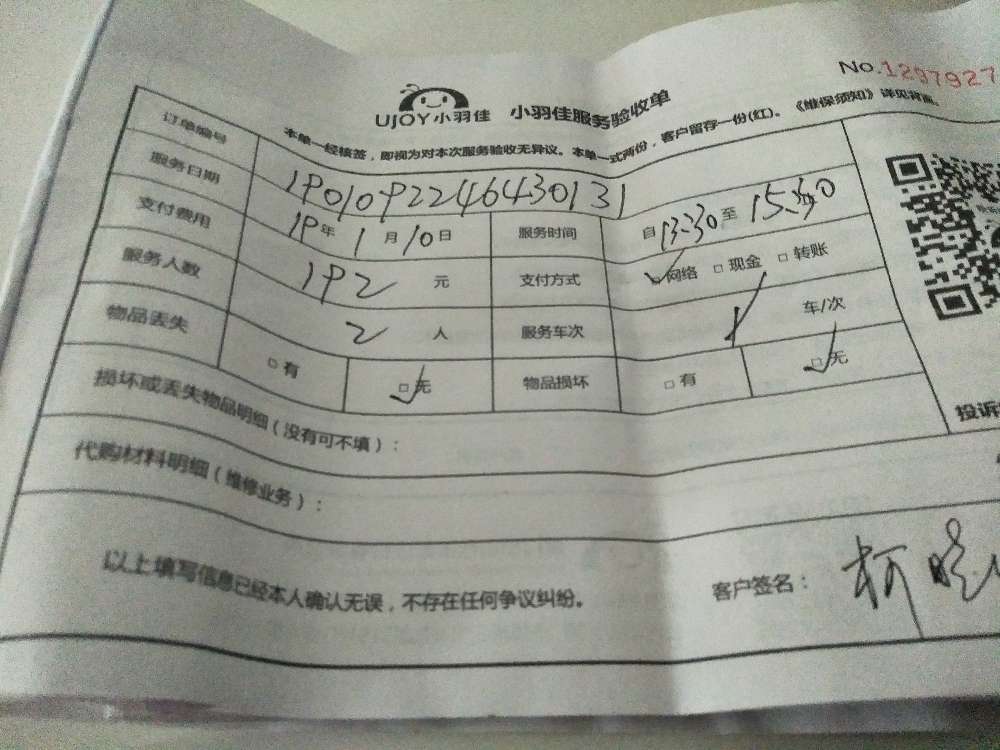 No.1297927
UJOY小羽佳 小羽佳服务验收单
本单一经核签，即视为对本次服务验收无异议。本单一式两份，客户留存一份(红)。《维保须知》详见背面。
订单编号 190109224646430131
服务日期 19年1月10日 服务时间 自13:30至15:30
支付费用 192元 支付方式 ☑网络 □现金 □转账
服务人数 2人 服务车次 1 车/次
物品丢失 □有 ☑无 物品损坏 □有 ☑无
损坏或丢失物品明细（没有可不填）：
代购材料明细（维修业务）：
投诉
以上填写信息已经本人确认无误，不存在任何争议纠纷。 客户签名： 柯晓